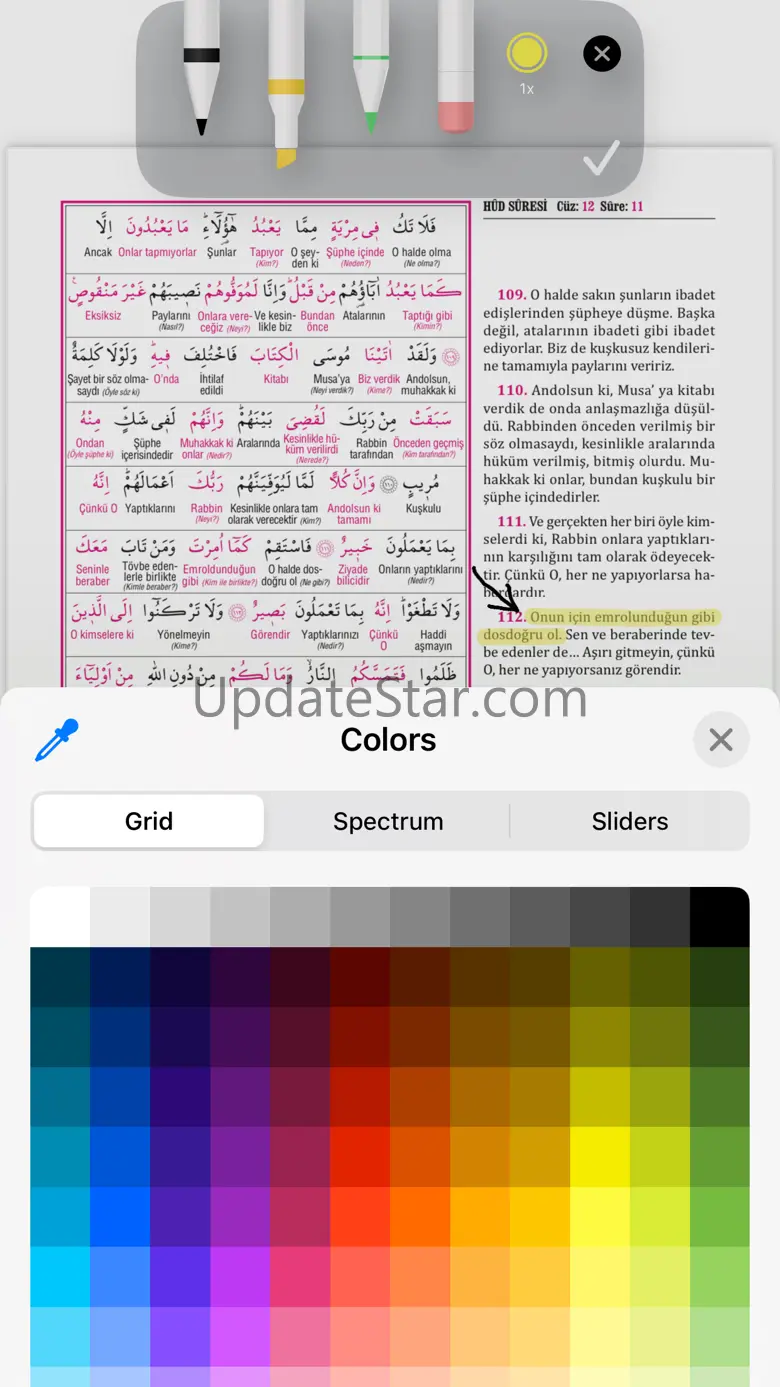 1x
HÛD SÛRESİ Cüz: 12 Sûre: 11
فَلَا تَكُ فٖى مِرْيَةٍ مِمَّا يَعْبُدُ هٰٓؤُلَٓاءِۜ مَا يَعْبُدُونَ اِلَّا
Ancak Onlar tapmıyorlar Şunlar Tapıyor O şey- Şüphe içinde O halde olma
(Kim?) den ki (Neden?) (Ne olma?)
كَمَا يَعْبُدُ اٰبَٓاؤُهُمْ مِنْ قَبْلُۜ وَاِنَّا لَمُوَفُّوهُمْ نَصٖيبَهُمْ غَيْرَ مَنْقُوصٍ
Eksiksiz Paylarını Onlara vere- Ve kesin- Bundan Atalarının Taptığı gibi
(Nasıl?) ceğiz (Neyi?) likle biz önce (Kimin?)
وَلَقَدْ اٰتَيْنَا مُوسَى الْكِتَابَ فَاخْتُلِفَ فٖيهِۜ وَلَوْلَا كَلِمَةٌ
Şayet bir söz olma- O’nda İhtilaf Kitabı Musa’ya Biz verdik Andolsun,
saydı (Öyle söz ki) edildi (Neyi verdik?) (Kime?) muhakkak ki
سَبَقَتْ مِنْ رَبِّكَ لَقُضِىَ بَيْنَهُمْۜ وَاِنَّهُمْ لَفٖى شَكٍّ مِنْهُ
Ondan Şüphe Muhakkak ki Aralarında Kesinlikle hü- Rabbin Önceden geçmiş
(Öyle şüphe ki) içerisindedir onlar (Nedir?) küm verilirdi tarafından (Kim tarafından?)
(Nerede?)
مُرٖيبٍ ﴿١١٠﴾ وَاِنَّ كُلًّا لَمَّا لَيُوَفِّيَنَّهُمْ رَبُّكَ اَعْمَالَهُمْۜ اِنَّهُ
Çünkü O Yaptıklarını Rabbin Kesinlikle onlara tam Andolsun ki Kuşkulu
(Neyi?) olarak verecektir (Kim?) tamamı
بِمَا يَعْمَلُونَ خَبٖيرٌ ﴿١١١﴾ فَاسْتَقِمْ كَمَٓا اُمِرْتَ وَمَنْ تَابَ مَعَكَ
Seninle Tövbe eden- Emrolunduğun O halde dos- Ziyade Onların yaptıklarını
beraber lerle birlikte gibi (Kim ile birlikte?) doğru ol (Ne gibi?) bilicidir (Nedir?)
(Kimle beraber?)
وَلَا تَطْغَوْاۜ اِنَّهُ بِمَا تَعْمَلُونَ بَصٖيرٌ ﴿١١٢﴾ وَلَا تَرْكَنُٓوا اِلَى الَّذٖينَ
O kimselere ki Yönelmeyin Görendir Yaptıklarınızı Çünkü Haddi
(Kime?) (Nedir?) O aşmayın
ظَلَمُوا فَتَمَسَّكُمُ النَّارُۙ وَمَا لَكُمْ مِنْ دُونِ اللّٰهِ مِنْ اَوْلِيَٓاءَ
109. O halde sakın şunların ibadet
edişlerinden şüpheye düşme. Başka
değil, atalarının ibadeti gibi ibadet
ediyorlar. Biz de kuşkusuz kendileri-
ne tamamıyla paylarını veririz.
110. Andolsun ki, Musa’ ya kitabı
verdik de onda anlaşmazlığa düşül-
dü. Rabbinden önceden verilmiş bir
söz olmasaydı, kesinlikle aralarında
hüküm verilmiş, bitmiş olurdu. Mu-
hakkak ki onlar, bundan kuşkulu bir
şüphe içindedirler.
111. Ve gerçekten her biri öyle kim-
selerdi ki, Rabbin onlara yaptıkları-
nın karşılığını tam olarak ödeyecek-
tir. Çünkü O, her ne yapıyorlarsa ha-
berdardır.
112. Onun için emrolunduğun gibi
dosdoğru ol. Sen ve beraberinde tev-
be edenler de... Aşırı gitmeyin, çünkü
O, her ne yapıyorsanız görendir.
UpdateStar.com
Colors
Grid Spectrum Sliders